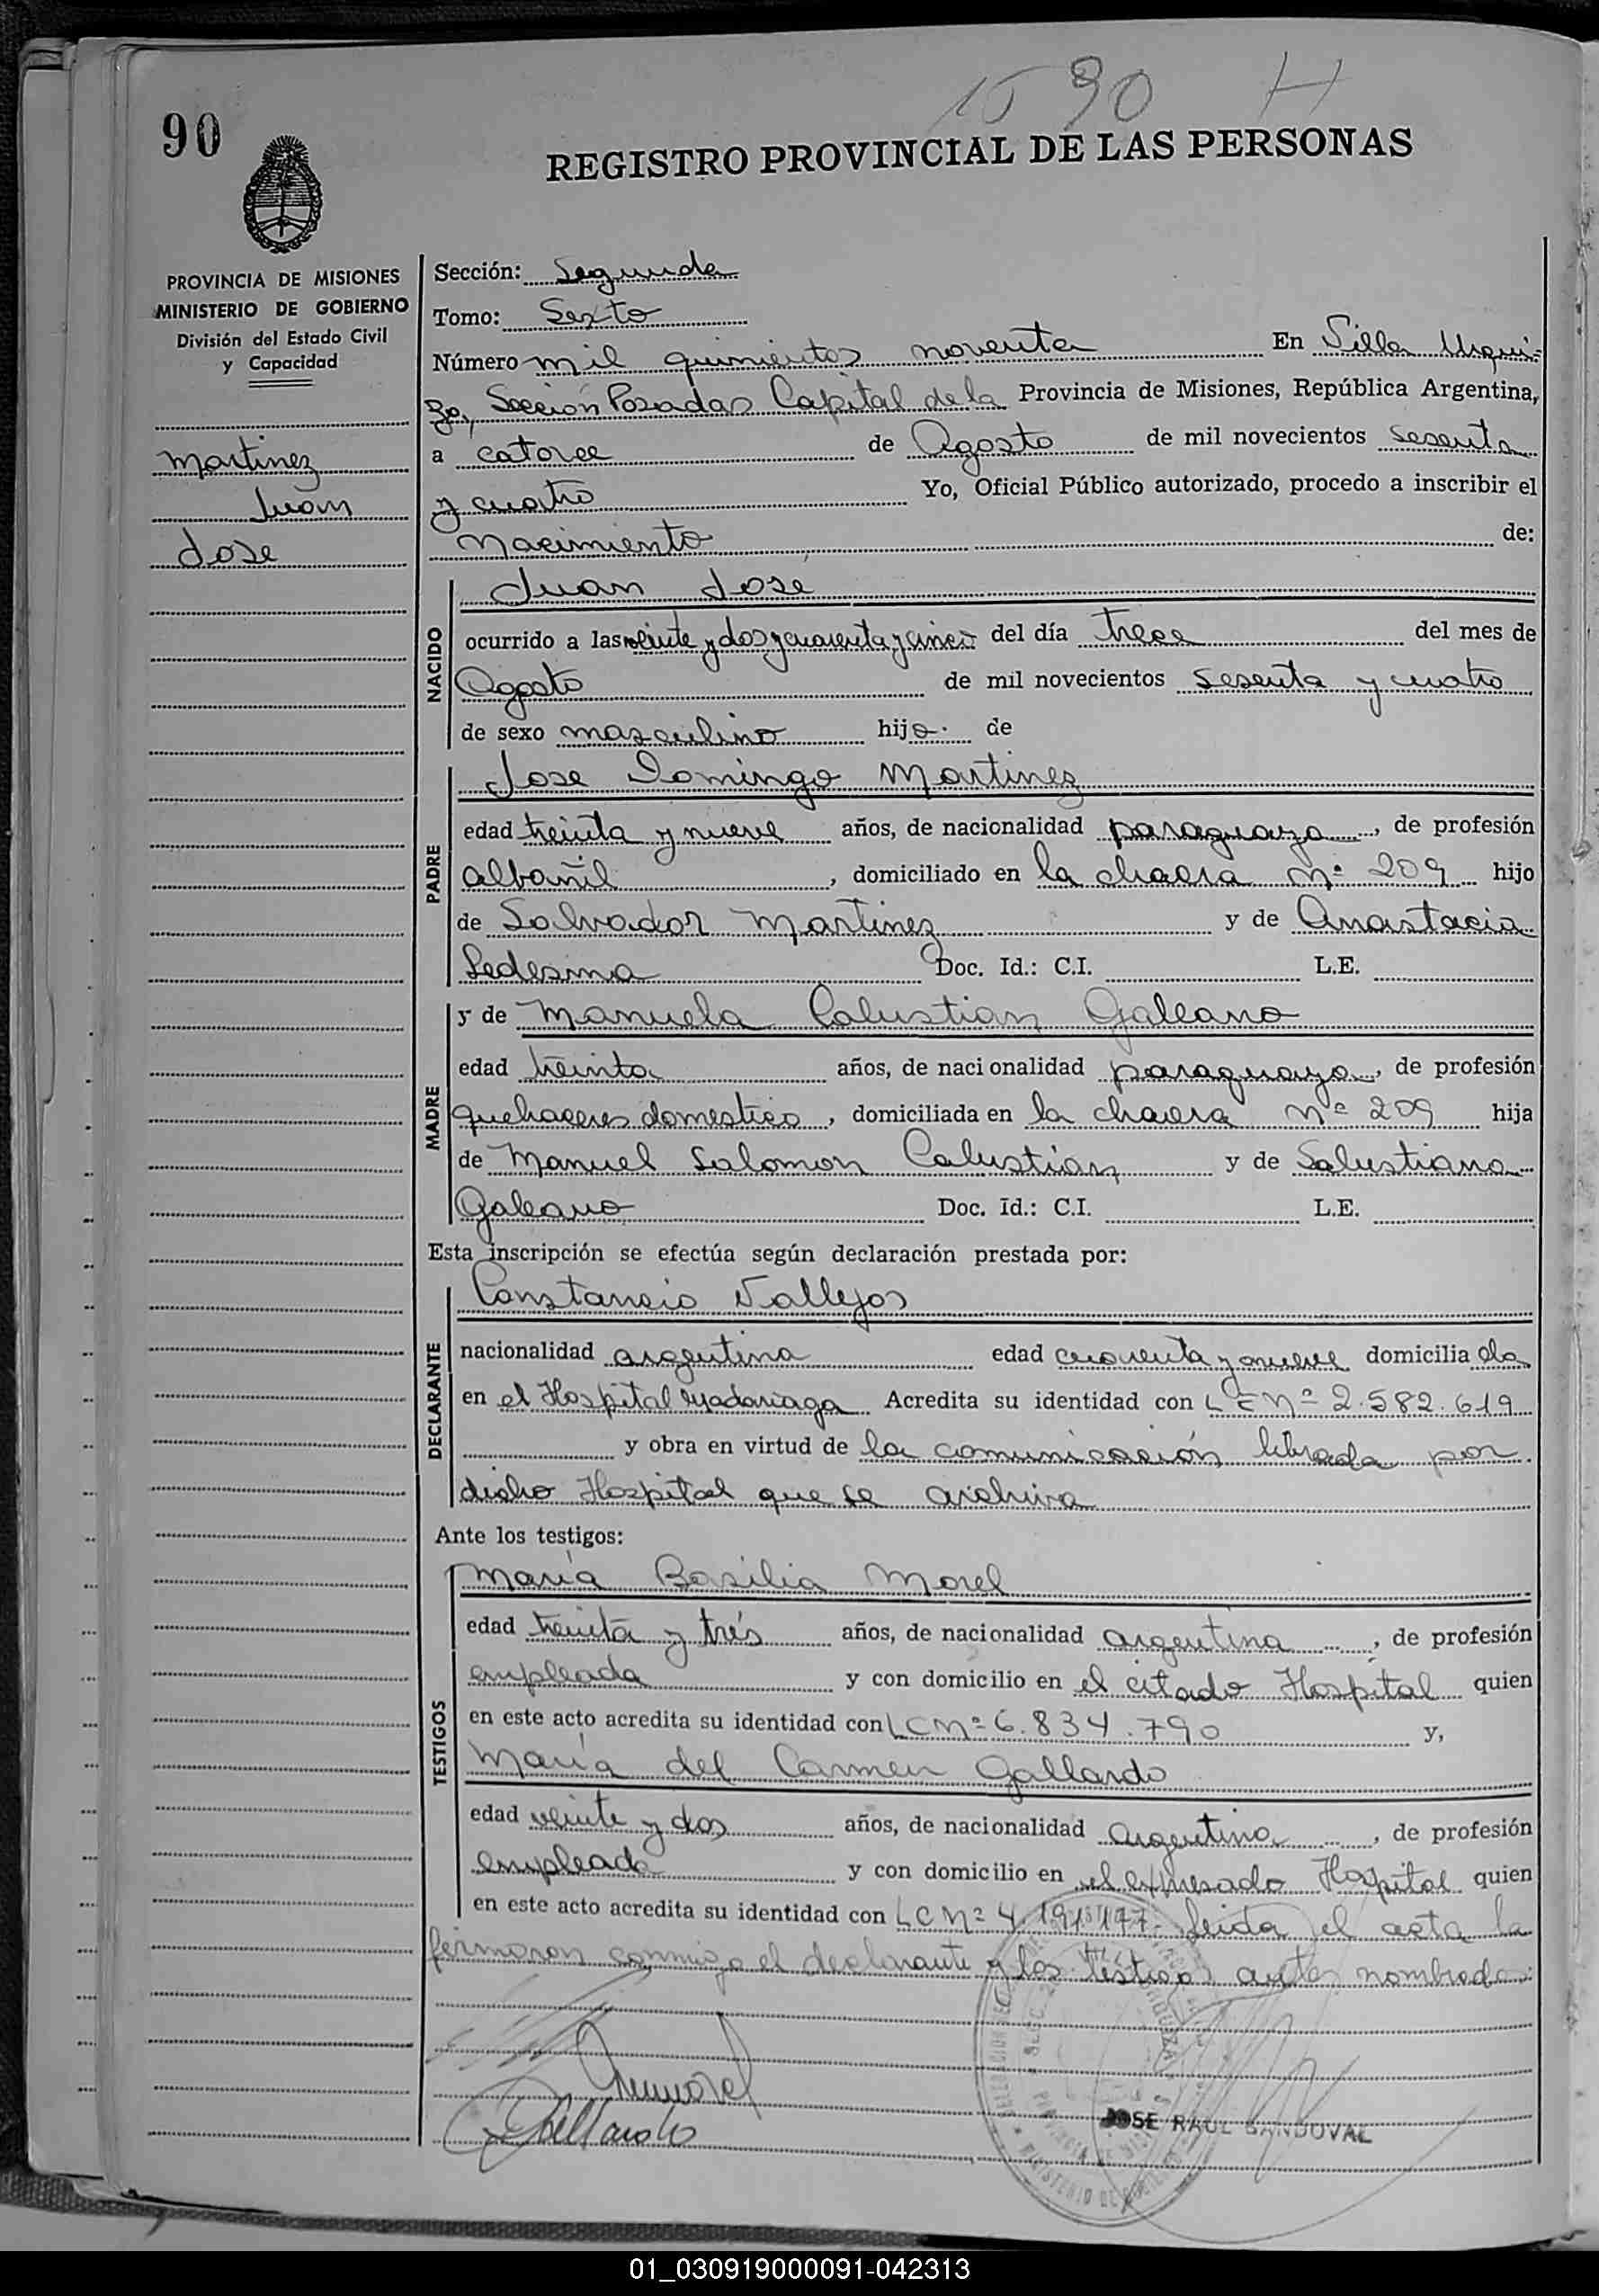 1590 H
90
REGISTRO PROVINCIAL DE LAS PERSONAS
PROVINCIA DE MISIONES
MINISTERIO DE GOBIERNO
División del Estado Civil
y Capacidad
Martinez
Juan
Jose
Sección: Segunda
Tomo: Sexto
Número mil quinientos noventa En Villa Urqui-
za, Sección Posadas Capital de la Provincia de Misiones, República Argentina,
a catorce de Agosto de mil novecientos sesenta
y cuatro Yo, Oficial Público autorizado, procedo a inscribir el
Nacimiento de:
NACIDO
Juan Jose
ocurrido a las veinte y dos y cuarenta y cinco del día trece del mes de
Agosto de mil novecientos sesenta y cuatro
de sexo masculino hijo de
PADRE
Jose Domingo Martinez
edad treinta y nueve años, de nacionalidad paraguaya, de profesión
albañil, domiciliado en la chacra Nº 209 hijo
de Salvador Martinez y de Anastacia
Ledesma Doc. Id.: C.I. L.E.
MADRE
y de Manuela Calustian Galeano
edad treinta años, de nacionalidad paraguaya, de profesión
quehaceres domestico, domiciliada en la chacra Nº 209 hija
de Manuel Salomon Calustian y de Salustiana
Galeano Doc. Id.: C.I. L.E.
Esta inscripción se efectúa según declaración prestada por:
DECLARANTE
Constancio Vallejos
nacionalidad argentina edad cuarenta y nueve domicilia da
en el Hospital Madariaga Acredita su identidad con L E Nº 2.582.619
y obra en virtud de la comunicación librada por
dicho Hospital que se archiva
Ante los testigos:
TESTIGOS
María Basilia Morel
edad treinta y trés años, de nacionalidad argentina, de profesión
empleada y con domicilio en el citado Hospital quien
en este acto acredita su identidad con L C Nº 6.834.790 y,
María del Carmen Gallardo
edad veinte y dos años, de nacionalidad Argentina, de profesión
empleada y con domicilio en el expresado Hospital quien
en este acto acredita su identidad con L C Nº 4.191.177. Leida el acta la
firmaron conmigo el declarante y los testigos antes nombrados
JOSE RAUL SANDOVAL
01_030919000091-042313